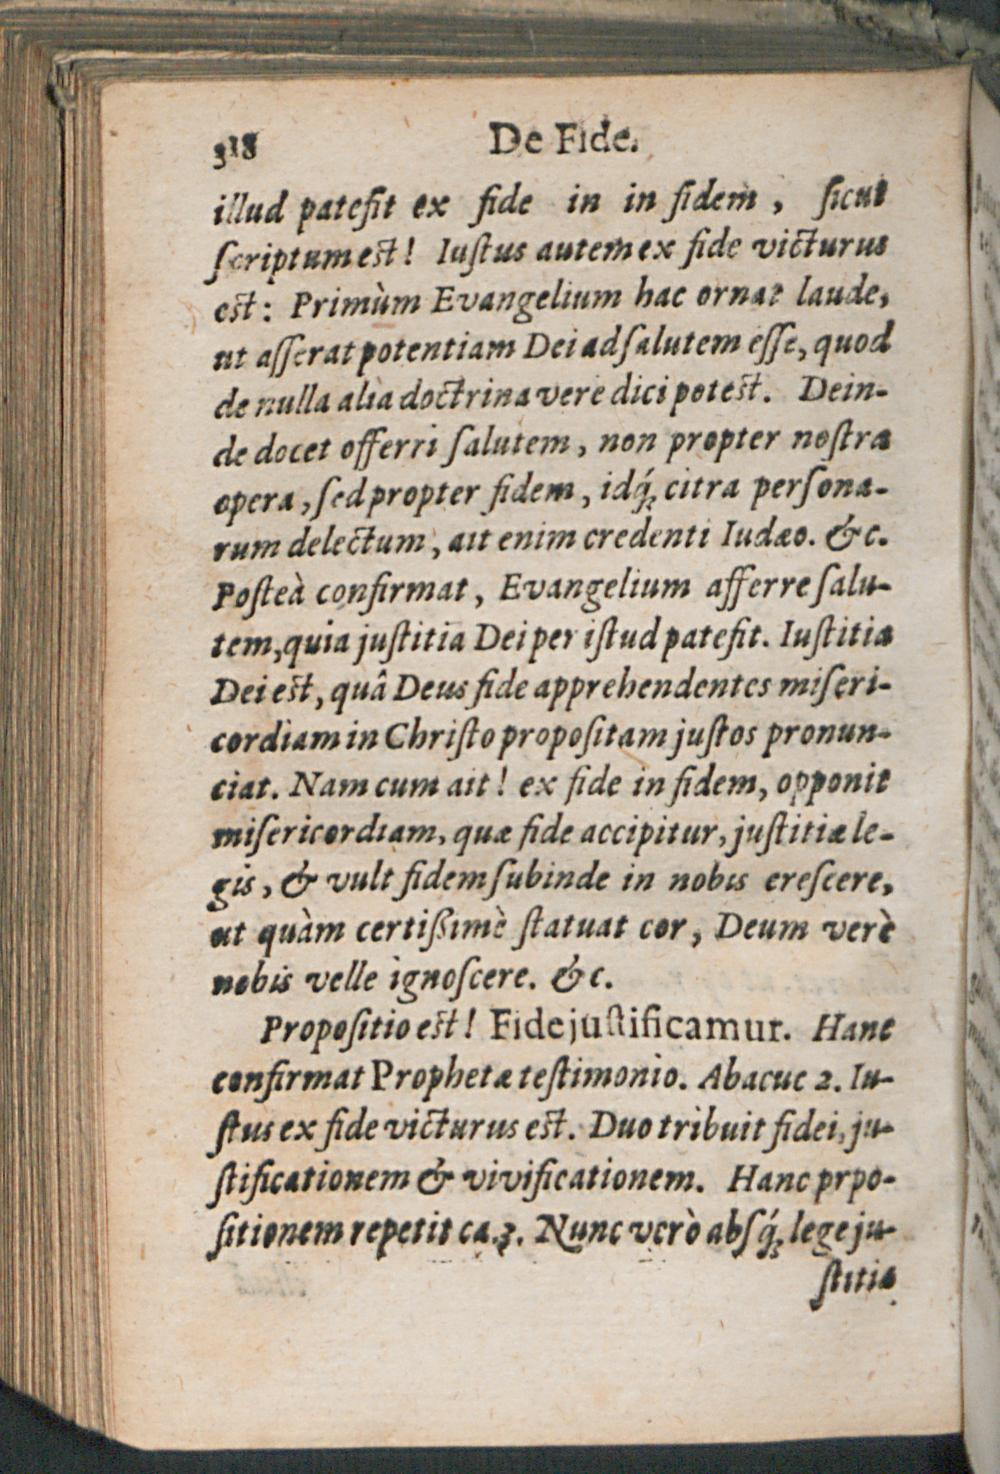 318 De Fide.
illud patefit ex fide in in fidem, ſicut
ſcriptum eſt! Iuſtus autem ex fide victurus
eſt: Primùm Evangelium hac ornat laude,
ut aſſerat potentiam Dei ad ſalutem eſſe, quod
de nulla alia doctrina vere dici poteſt. Dein-
de docet offerri ſalutem, non propter noſtra
opera, ſed propter fidem, idq́; citra perſona-
rum delectum, ait enim credenti Iudæo. &c.
Poſteà confirmat, Evangelium afferre ſalu-
tem, quia juſtitia Dei per iſtud patefit. Iuſtitia
Dei eſt, quâ Deus fide apprehendentes miſeri-
cordiam in Chriſto propoſitam juſtos pronun-
ciat. Nam cum ait! ex fide in fidem, opponit
miſericordiam, quæ fide accipitur, juſtitiæ le-
gis, & vult fidem ſubinde in nobis ereſcere,
ut quàm certißimè ſtatuat cor, Deum verè
nobis velle ignoſcere. &c.
Propoſitio eſt! Fide juſtificamur. Hanc
confirmat Prophetæ teſtimonio. Abacuc 2. Iu-
ſtus ex fide victurus eſt. Duo tribuit fidei, ju-
ſtificationem & vivificationem. Hanc prpo-
ſitionem repetit ca. 3. Nunc verò abſq́; lege ju-
ſtitia